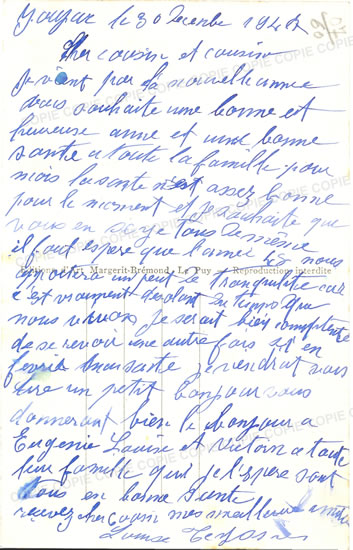 le 30 Decembre 194
Cher cousin et cousine
je vient par la nouvelle annee
vous souhaite une bonne et
heureuse anne et une bonne
sante a toute la famille pour
mois la sante n'est assez bonne
pour le moment et je souhaite que
vous en soyez tous de même
il faut espere que l'anne 48 nous
Editions d'Art Margerit-Brémond - Le Puy - Reproductions interdite
apportera un peut de tranquilite car
c'est vraiment desolant du temps que
nous vivon je serait bien contente
de se revoir une autre fois si en
je viendrait vous
dire un petit bonjour vous
donnerent bien le bonjour a
Eugenie Louise et Victorin a toute
leur famille qui je l'espere sont
tous en bonne sante
recevez cher cousin mes meilleurs
Louise
COPIE COPIE COPIE